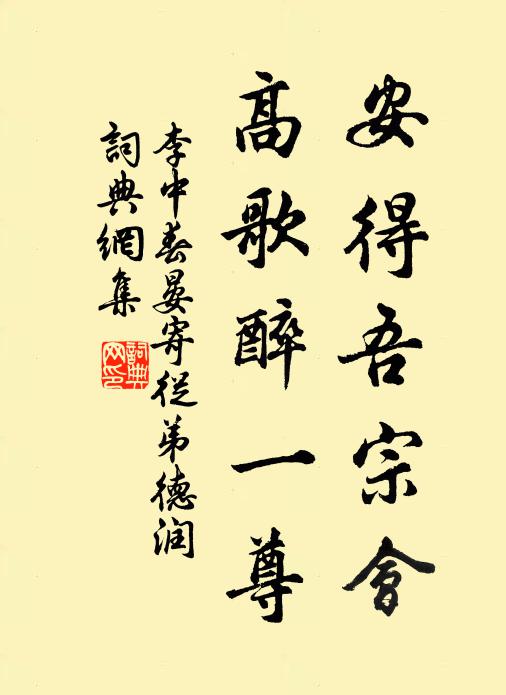 安得吾宗會
高歌醉一尊
李中春晏寄從弟德润
詞典網集
詞典
网印